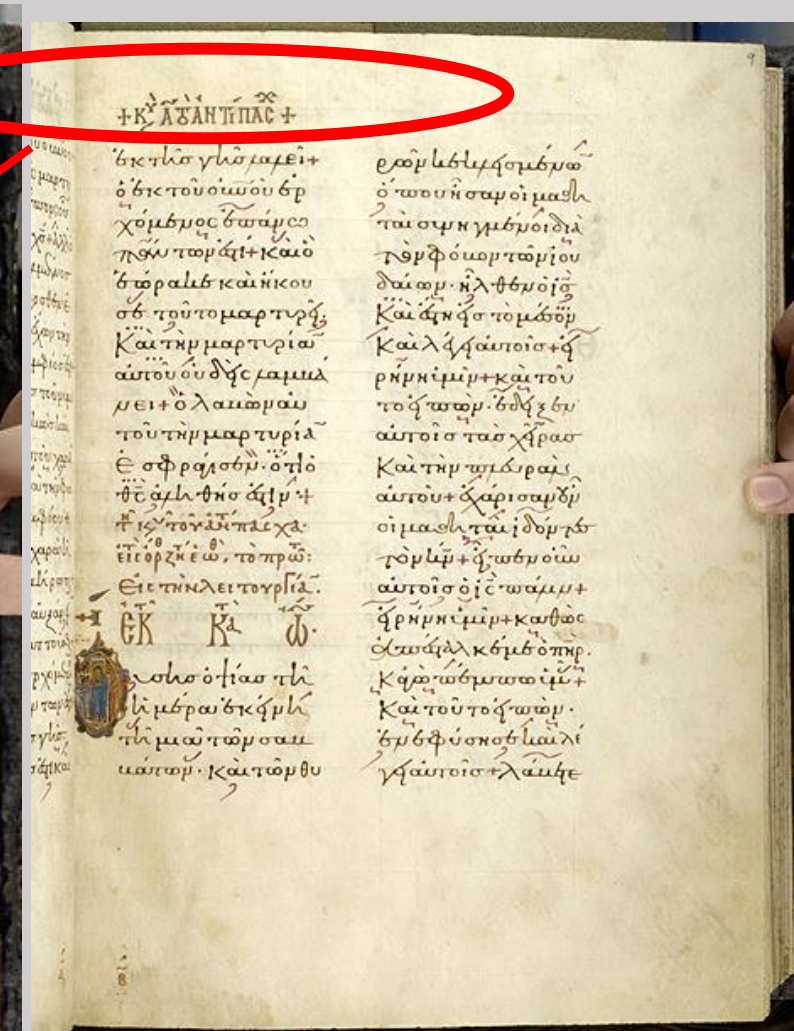 + Κυ ΑΓΟΥ ΑΝΤΙΠΑCΧ +
ἐκ τῆς γῆς λαλεῖ+
ὁ ἐκ τοῦ οὐνοῦ ἐρ
χόμενος ἐπάνω
πάντων ἐστί+ καὶ ὃ
ἑώρακε καὶ ἤκου
σε τοῦτο μαρτυρεῖ.
Καὶ τὴν μαρτυρίαν
αὐτοῦ οὐδεὶς λαμβά
νει+ ὁ λαβὼν αὐ
τοῦ τὴν μαρτυρίαν
Ἐσφράγισεν. ὅτι ὁ
θς ἀληθής ἐστιν +
τῇ κυ τοῦ ἀντίπασχα.
Εἰς τὴν λειτουργίαν.
ἘΚ Κα Ἰω.
σης ὀψίας τῇ
ἡμέρᾳ ἐκείνῃ
τῇ μιᾷ τῶν σαβ
βάτων. καὶ τῶν θυ
ρῶν κεκλεισμένων
ὅπου ἦσαν οἱ μαθη
ταὶ συνηγμένοι διὰ
τὸν φόβον τῶν ἰου
δαίων. ἦλθεν ὁ ις
Καὶ ἔστη εἰς τὸ μέσον
Καὶ λέγει αὐτοῖς+ εἰ
ρήνη ὑμῖν+ καὶ τοῦ
το εἰπὼν. ἔδειξεν
αὐτοῖς τὰς χεῖρας
Καὶ τὴν πλευρὰν
αὐτοῦ+ ἐχάρισαν οὖν
οἱ μαθηταὶ ἰδόντες
τὸν κν+ εἶπεν οὖν
αὐτοῖς ὁ ις πάλιν+
εἰρήνη ὑμῖν+ καθὼς
ἀπέσταλκέ με ὁ πηρ.
Κἀγὼ πέμπω ὑμᾶς+
Καὶ τοῦτο εἰπὼν.
ἐνεφύσησε καὶ λέ
γει αὐτοῖς+ λάβετε